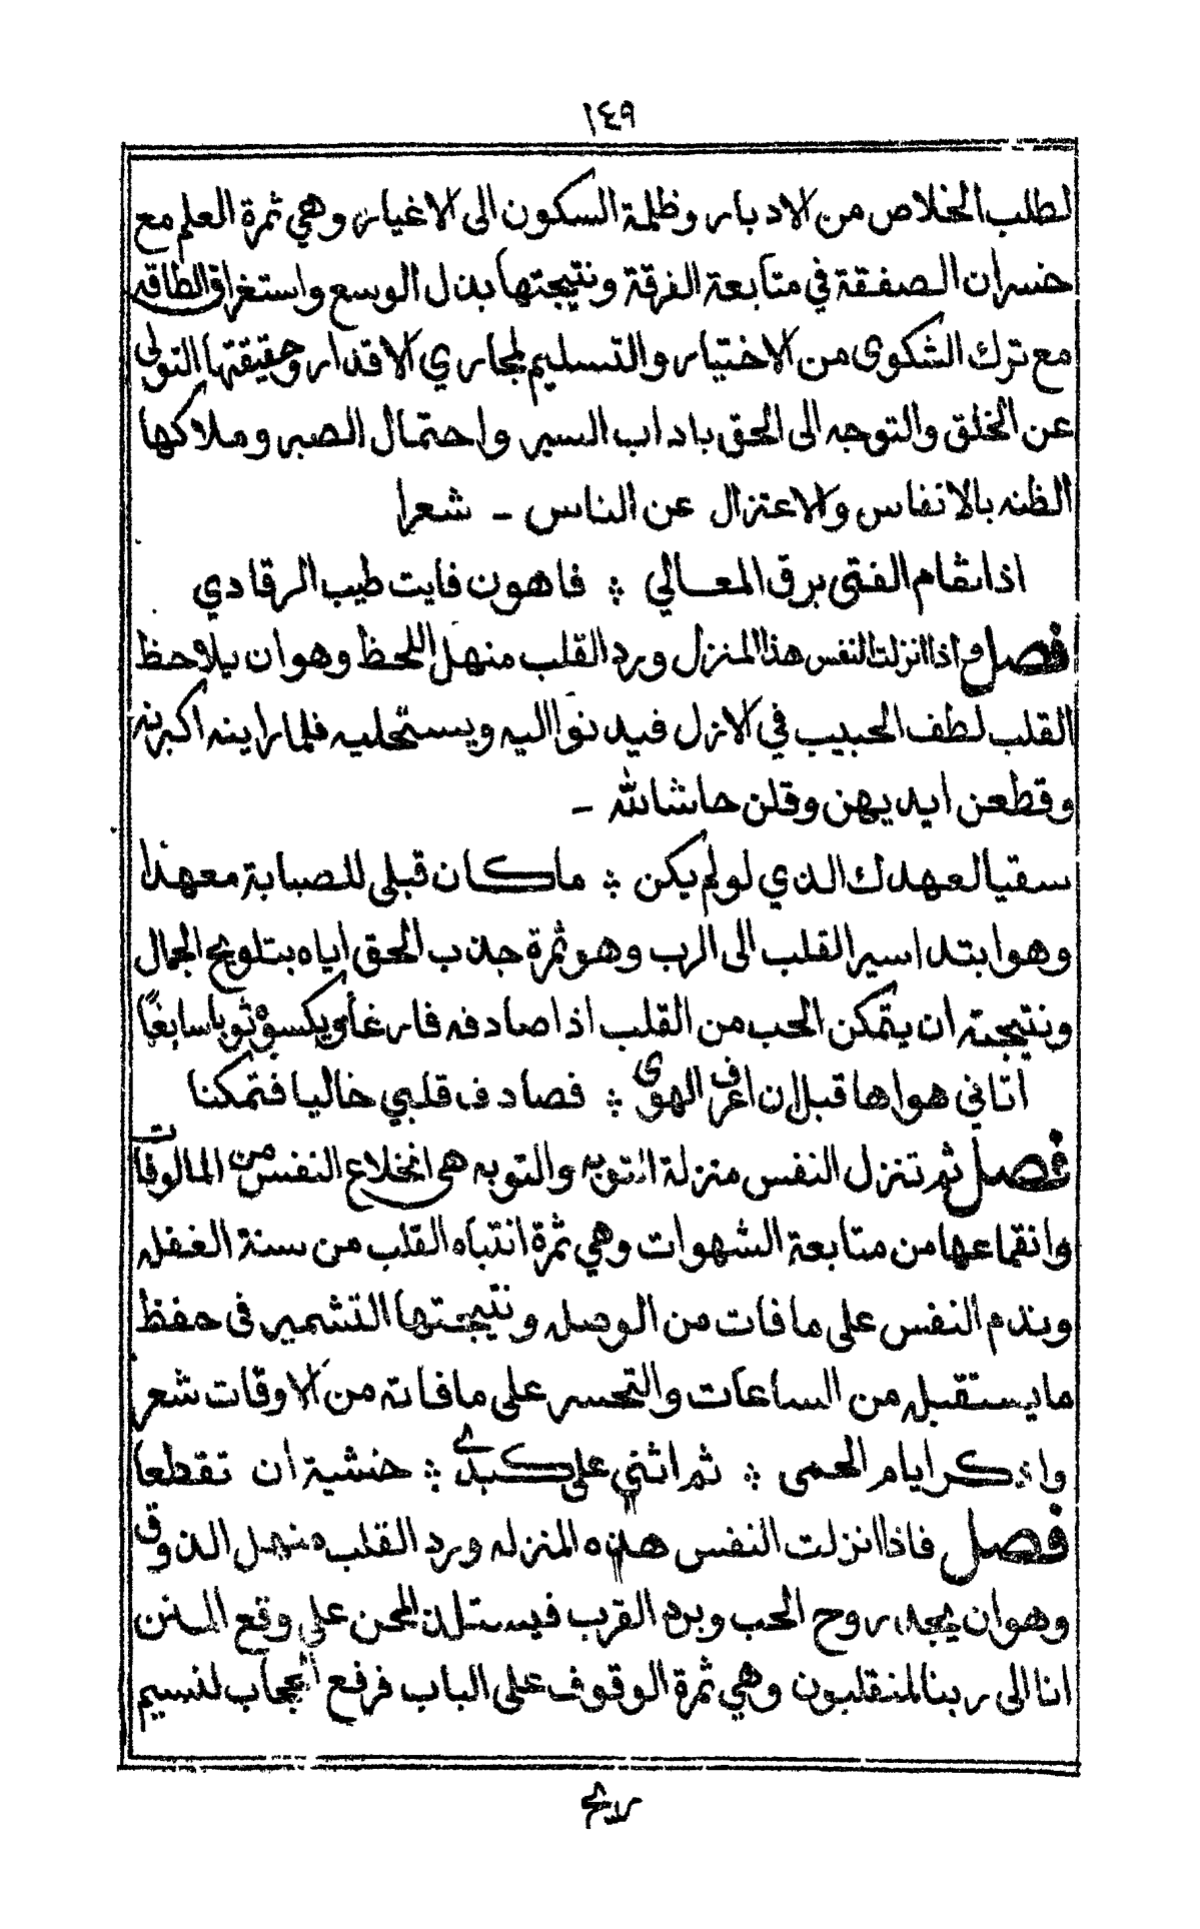 ١٤٩
لطلب الخلاص من الادبار وظلمة السكون الى الاغيار وهي ثمرة العلم مع
خسران الصفقة في متابعة الفرقة ونتيجتها بذل الوسع واستغراق الطاقه
مع ترك الشكوى من الاختيار والتسليم لمجاري الاقدار وحقيقتها التولى
عن الخلق والتوجه الى الحق باداب السير واحتمال الصبر وملاكها
الظنه بالانفاس والاعتزال عن الناس - شعرا
اذا شام الفتى برق المعالي ۞ فاهون فايت طيب الرقادي
فصل و اذا انزلت النفس هذا المنزل ورد القلب منهل اللحظ وهو ان يلاحظ
القلب لطف الحبيب في الازل فيدنوا اليه ويستحليه فلما راينه اكبرنه
وقطعن ايديهن وقلن حاشا لله -
سقيا لعهدك الذي لو لم يكن ۞ ما كان قبلى للصبابة معهذا
وهو ابتدا سير القلب الى الرب وهو ثمرة جذب الحق اياه بتلويح الجمال
ونتيجته ان يتمكن الحب من القلب اذا صادفه فارغا ويكسوه ثوبا سابغا
اتاني هواها قبل ان اعرف الهوى ۞ فصادف قلبي خاليا فتمكنا
فصل ثم تنزل النفس منزلة التوبه والتوبه هى انخلاع النفس من المالوفات
وانقماعها من متابعة الشهوات وهي ثمرة انتباه القلب من سنة الغفله
وندم النفس على ما فات من الوصل ونتيجتها التشمير فى حفظ
ما يستقبل من الساعات والتحسر على ما فاته من الاوقات شعر
واذكر ايام الحمى ۞ ثم اثني على كبدي ۞ خشية ان تقطعا
فصل فاذا انزلت النفس هذه المنزله ورد القلب منهل الذوق
وهو ان يجد روح الحب وبرد القرب فيستلذ المحن على وقع المنن
انا الى ربنا لمنقلبون وهي ثمرة الوقوف على الباب فرفع الحجاب لنسيم
ريح